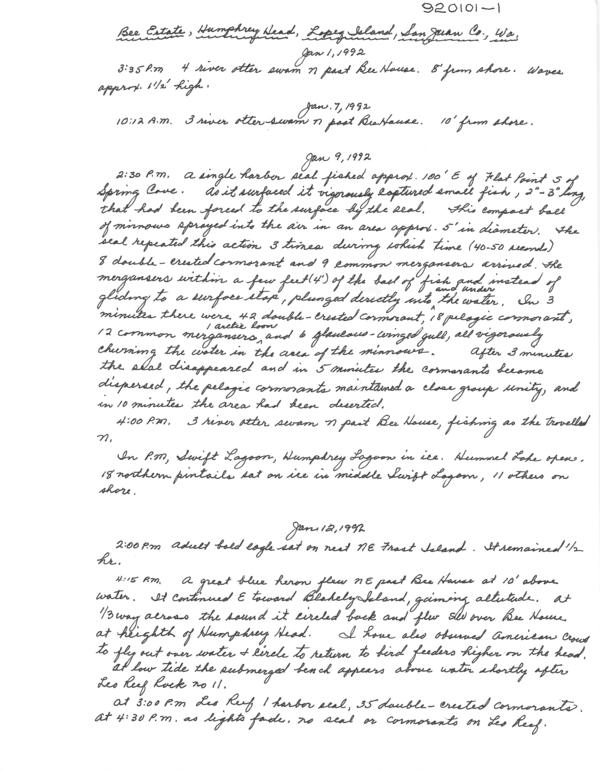 920101-1
Bee Estate, Humphrey Head, Lopez Island, San Juan Co., Wa.
Jan 1, 1992
3:35 P.m 4 river otter swam n past Bee House. 8' from shore. Waves
approx. 1 1/2' high.
Jan. 7, 1992
10:12 A.M. 3 river otter swam n past Bee House. 10' from shore.
Jan 9, 1992
2:30 P.M. A single harbor seal fished approx. 100' E of Flat Point S of
Spring Cove. As it surfaced it vigorously captured small fish, 2"-3" long,
that had been forced to the surface by the seal. This compact ball
of minnows sprayed into the air in an area approx. 5' in diameter. The
seal repeated this action 3 times during which time (40-50 seconds)
8 double-crested cormorant and 9 common mergansers arrived. The
mergansers within a few feet (4') of the ball of fish and instead of
gliding to a surface stop, plunged directly into and under the water. In 3
minutes there were 42 double-crested cormorant, 18 pelagic cormorant,
12 common mergansers, 1 arctic loon and 6 glaucous-winged gull, all vigorously
churning the water in the area of the minnows. After 3 minutes
the seal disappeared and in 5 minutes the cormorants became
dispersed, the pelagic cormorants maintained a close group unity, and
in 10 minutes the area had been deserted.
4:00 P.M. 3 river otter swam n past Bee House, fishing as the travelled
n.
In P.M, Swift Lagoon, Humphrey Lagoon in ice. Hummel Lake open.
18 northern pintails sat on ice in middle Swift Lagoon, 11 others on
shore.
Jan 12, 1992
2:00 P.m adult bald eagle sat on nest NE Frost Island. It remained 1/2
hr.
4:15 P.M. A great blue heron flew NE past Bee House at 10' above
water. It continued E toward Blakely Island, gaining altitude. At
1/3 way across the sound it circled back and flew SW over Bee House
at heighth of Humphrey Head. I have also observed American Crows
to fly out over water & circle to return to bird feeders higher on the head.
At low tide the submerged bench appears above water shortly after
Leo Reef Rock no 11.
At 3:00 P.M Leo Reef 1 harbor seal, 35 double-crested cormorants.
At 4:30 P.M. as lights fade. no seal or cormorants on Leo Reef.